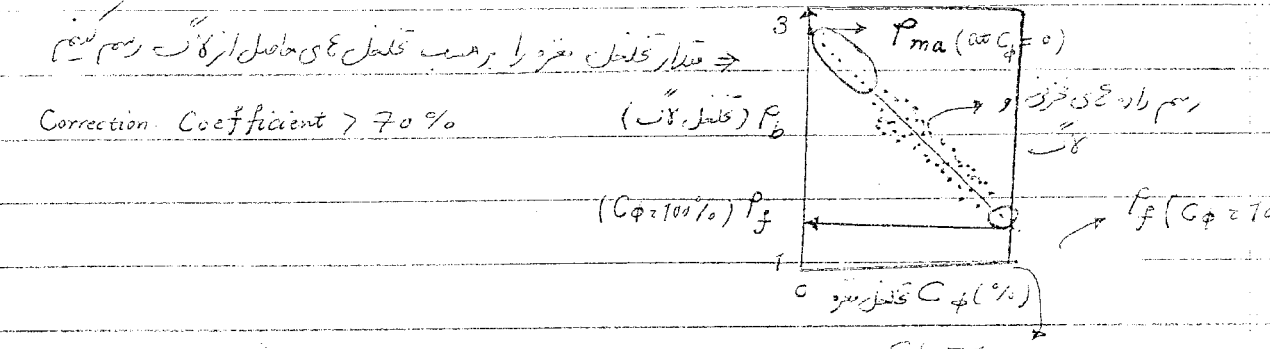 ⇒ مقدار تخلخل مغزه را برحسب تخلخل های حاصل از لاگ رسم کنیم
Correction Coefficient > 70%
3
ρma (at Cφ = 0)
رسم داده های مغزه و لاگ
ρb (تخلخل لاگ)
(Cφ = 100%) ρf
ρf (Cφ = 10
1
0
Cφ (%) تخلخل مغزه